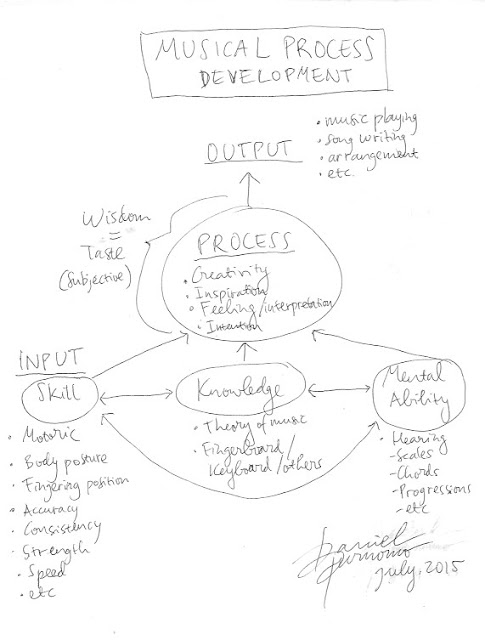 MUSICAL PROCESS
DEVELOPMENT
OUTPUT
• music playing
• song writing
• arrangement
• etc.
Wisdom
=
Taste
(Subjective)
PROCESS
• Creativity
• Inspiration
• Feeling/interpretation
• Intention
INPUT
Skill
• Motoric
• Body posture
• Fingering position
• Accuracy
• Consistency
• Strength
• Speed
• etc
Knowledge
• Theory of music
• Fingerboard/
Keyboard/others
Mental
Ability
• Hearing
-Scales
-Chords
-Progressions
-etc
Daniel
Purnomo
July, 2015